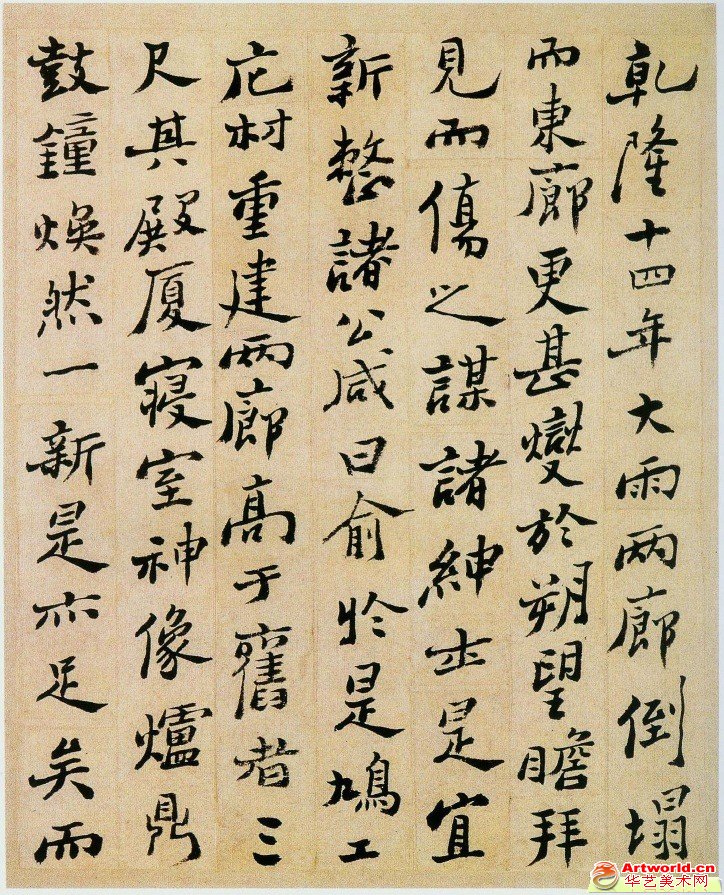 乾隆十四年大雨两廊倒塌
而東廊更甚燮於朔望瞻拜
見而傷之謀諸紳士是宜
新整諸公咸曰俞於是鳩工
庀材重建两廊高于舊者三
尺其殿厦寢室神像爐鼎
鼓鐘煥然一新是亦足矣而
Artworld.cn
华艺美术网